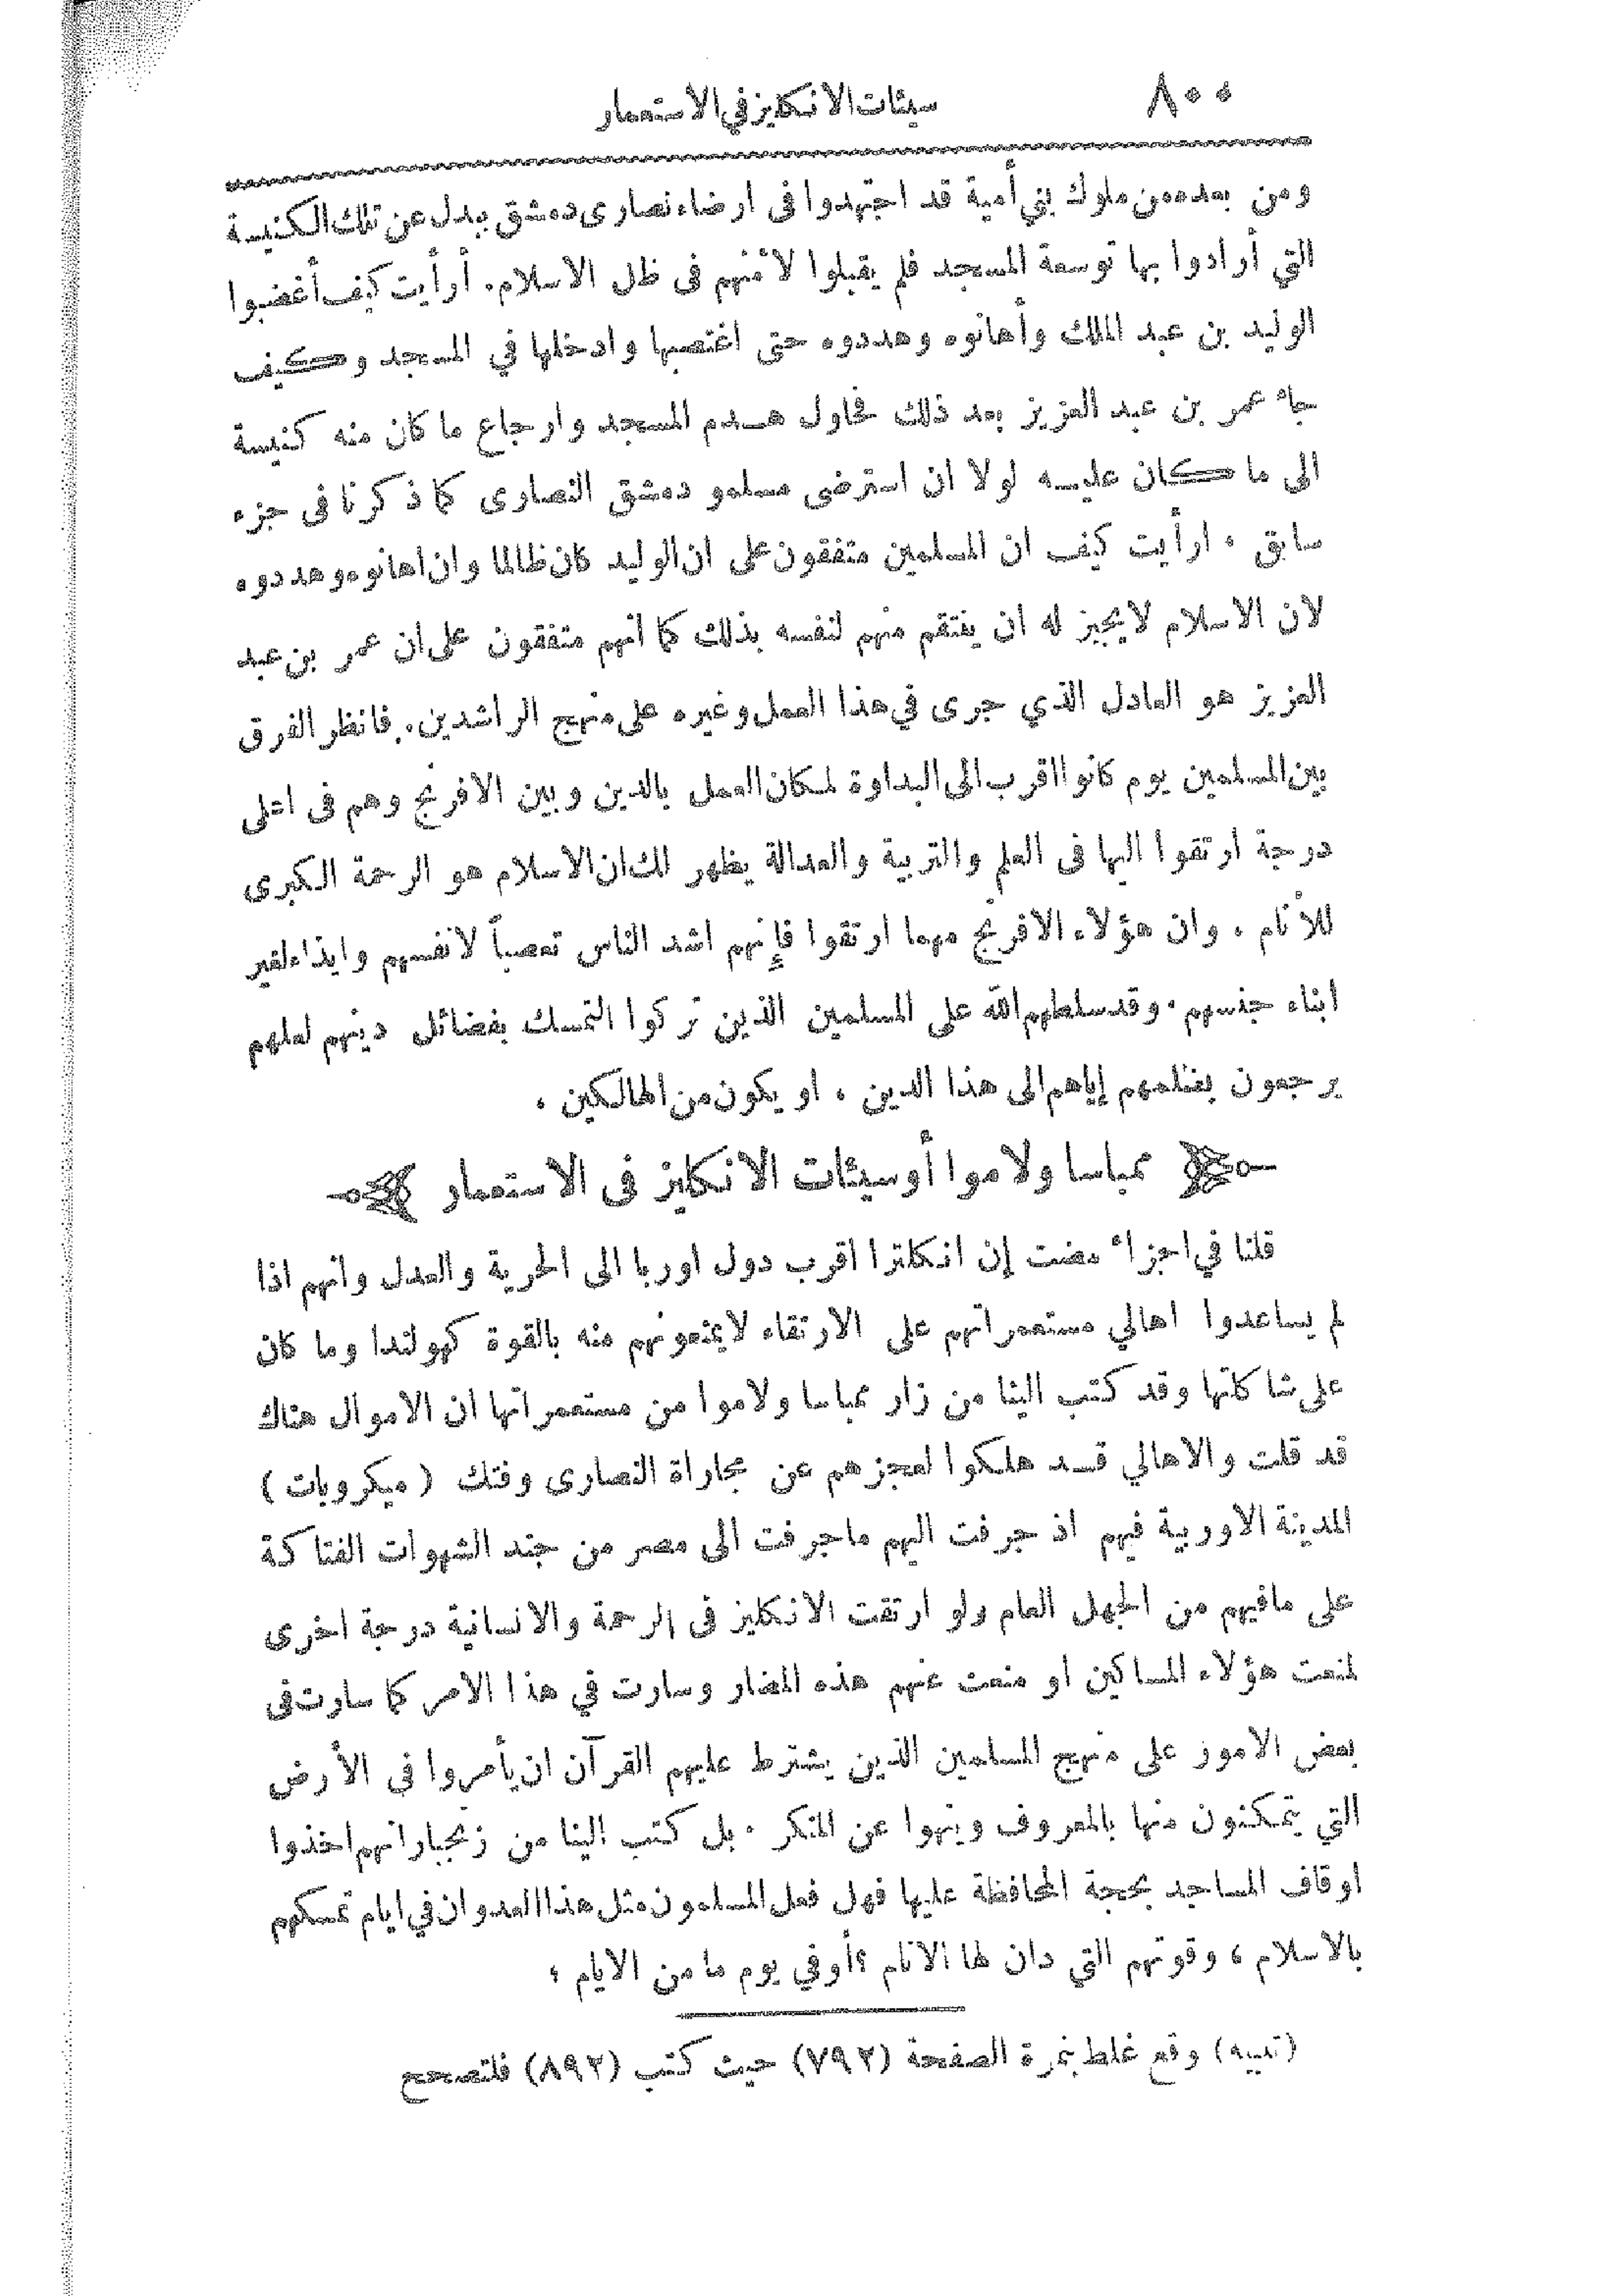 ٨٠٠ سيئات الانكليز في الاستعمار
ومن بعده من ملوك بني أمية قد اجتهدوا فى ارضاء نصارى دمشق ببدل عن تلك الكنيسة
التي أرادوا بها توسعة المسجد فلم يقبلوا لأمنهم فى ظل الاسلام. أرأيت كيف أغضبوا
الوليد بن عبد الملك وأهانوه وهددوه حتى اغتصبها وادخلها في المسجد وكيف
جاء عمر بن عبد العزيز بعد ذلك فحاول هدم المسجد وارجاع ما كان منه كنيسة
الى ما كان عليه لولا ان استرضى مسلمو دمشق النصارى كما ذكرنا فى جزء
سابق . ارأيت كيف ان المسلمين متفقون على ان الوليد كان ظالما وان اهانوه وهددوه
لان الاسلام لا يجيز له ان ينتقم منهم لنفسه بذلك كما انهم متفقون على ان عمر بن عبد
العزيز هو العادل الذي جرى في هذا العمل وغيره على منهج الراشدين. فانظر الفرق
بين المسلمين يوم كانوا اقرب الى البداوة لمكان العمل بالدين وبين الافرنج وهم فى اعلى
درجة ارتقوا اليها فى العلم والتربية والعدالة يظهر لك ان الاسلام هو الرحمة الكبرى
للأنام . وان هؤلاء الافرنج مهما ارتقوا فإنهم اشد الناس تعصباً لانفسهم وايذاء لغير
ابناء جنسهم . وقد سلطهم الله على المسلمين الذين تركوا التمسك بفضائل دينهم لعلهم
يرجعون بظلمهم إياهم الى هذا الدين ، او يكون من الهالكين .
ممباسا ولاموا أو سيئات الانكليز فى الاستعمار
قلنا في اجزاء مضت إن انكلترا اقرب دول اوربا الى الحرية والعدل وانهم اذا
لم يساعدوا اهالي مستعمراتهم على الارتقاء لا يمنعونهم منه بالقوة كهولندا وما كان
على شاكلتها وقد كتب الينا من زار ممباسا ولاموا من مستعمراتها ان الاموال هناك
قد قلت والاهالي قد هلكوا لعجزهم عن مجاراة النصارى وفتك ( ميكروبات )
المدينة الاوربية فيهم اذ جرفت اليهم ما جرفت الى مصر من جند الشهوات الفتاكة
على ما فيهم من الجهل العام ولو ارتقت الانكليز فى الرحمة والانسانية درجة اخرى
لمنعت هؤلاء المساكين او منعت عنهم هذه المضار وسارت في هذا الامر كما سارت فى
بعض الامور على منهج المسلمين الذين يشترط عليهم القرآن ان يأمروا فى الأرض
التي يتمكنون منها بالمعروف وينهوا عن المنكر . بل كتب الينا من زنجبار انهم اخذوا
اوقاف المساجد بحجة المحافظة عليها فهل فعل المسلمون مثل هذا العدوان في ايام تمسكهم
بالاسلام ، وقوتهم التي دان لها الانام ؟ أو في يوم ما من الايام ؟
(تنبيه) وقع غلط بنمرة الصفحة (٧٩٢) حيث كتب (٨٩٢) فلتصحح